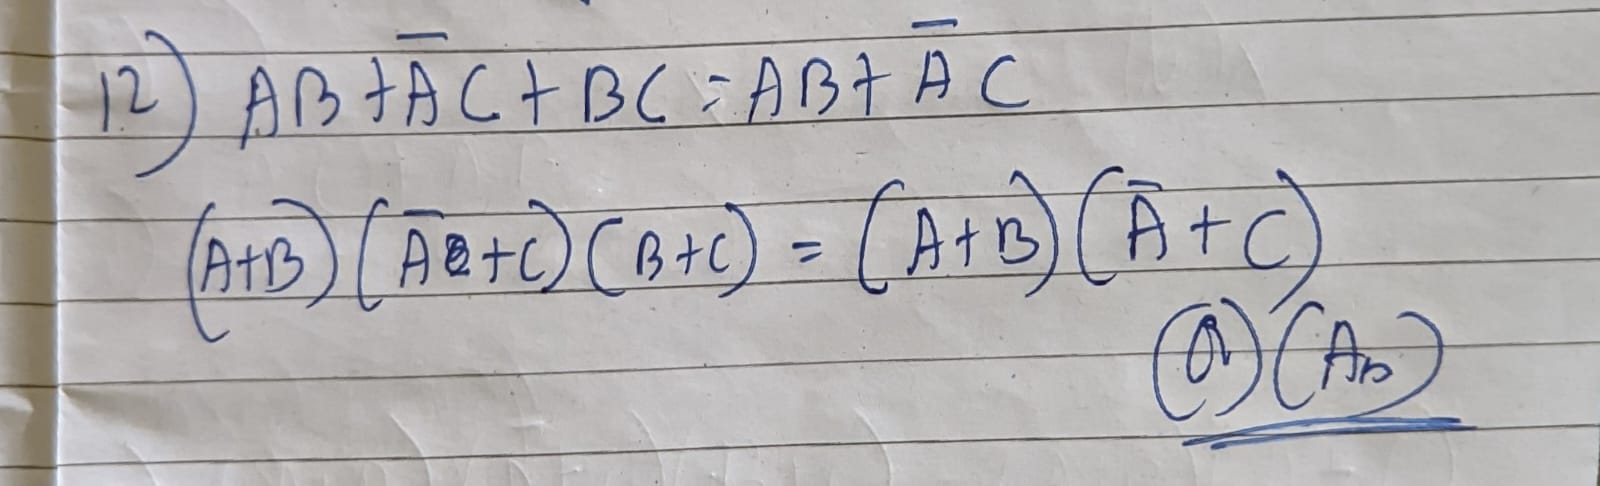 12) AB + A̅C + BC = AB + A̅C
(A+B)(A̅+C)(B+C) = (A+B)(A̅+C)